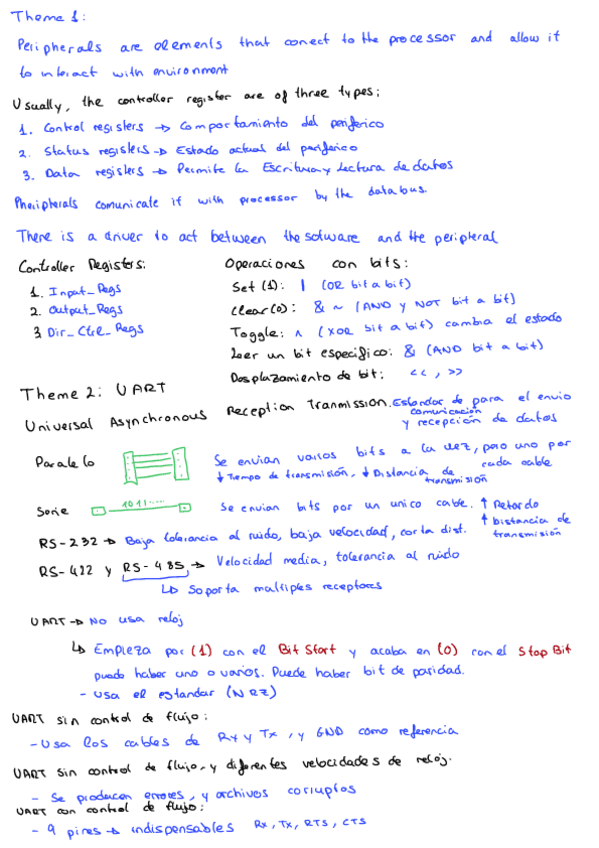 Theme 1:
Peripherals are elements that conect to the processor and allow it
to interact with environment
Usually, the controller register are of three types:
1. Control registers → Comportamiento del periferico
2. Status registers → Estado actual del periferico
3. Data registers → Permite la Escritura y Lectura de datos
Pheripherals comunicate it with processor by the databus.
There is a driver to act between the sotware and the peripheral
Controller Registers:
1. Input_Regs
2. Output_Regs
3. Dir_Ctrl_Regs
Operaciones con bits:
Set (1): | (OR bit a bit)
Clear(0): & ~ (AND y NOT bit a bit)
Toggle: ^ (XOR bit a bit) cambia el estado
Leer un bit especifico: & (AND bit a bit)
Desplazamiento de bit: <<, >>
Theme 2: UART
Universal Asynchronous Reception Tranmission. Estandar de para el envio
comunicación
y recepción de datos
Paralelo
Se envian varios bits a la vez, pero uno por
cada cable
↓ Tiempo de transmisión, ↓ Distancia de
transmisión
Serie
1011....
Se envian bits por un unico cable. ↑ Retardo
↑ Distancia de
transmisión
RS-232 → Baja tolerancia al ruido, baja velocidad, corta dist.
RS-422 y RS-485 → Velocidad media, tolerancia al ruido
↳ Soporta multiples receptores
UART → No usa reloj
↳ Empieza por (1) con el Bit Start y acaba en (0) con el Stop Bit
puede haber uno o varios. Puede haber bit de paridad.
- usa el estandar (NRZ)
UART sin control de flujo:
- Usa los cables de Rx y Tx, y GND como referencia
UART sin control de flujo, y diferentes velocidades de reloj.
- Se producen errores, y archivos corruptos
UART con control de flujo:
- 9 pines → indispensables Rx, Tx, RTS, CTS